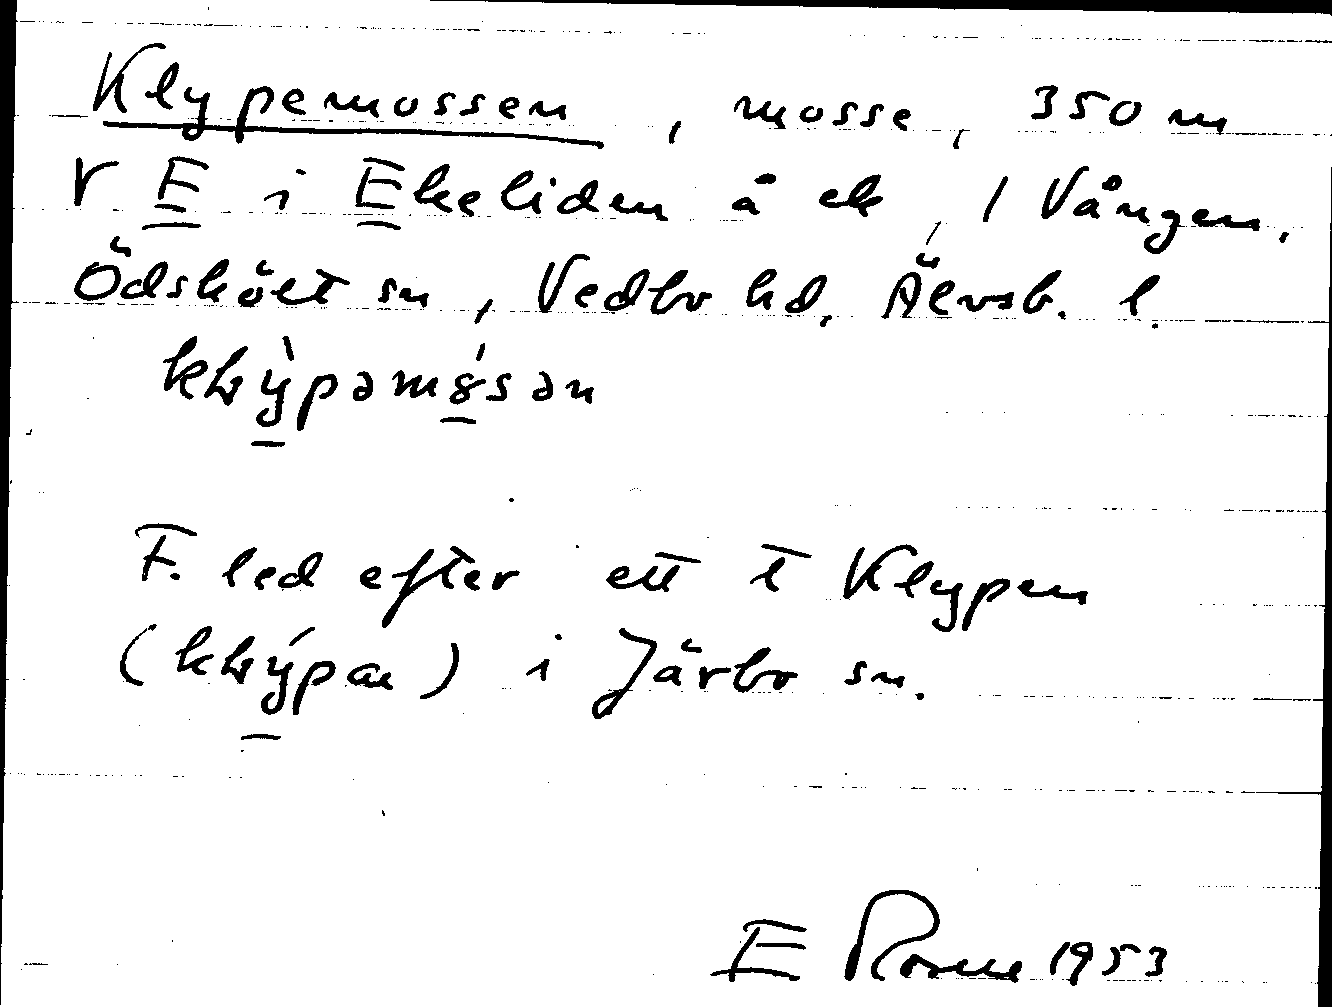 Klypemossen, mosse, 350 m
r E i Ekeliden å ek, 1 Vången,
Ödskölt sn, Vedbo hd, Älvsb. l.
F. led efter ett t Klypen
i Järbo sn.
E 1953